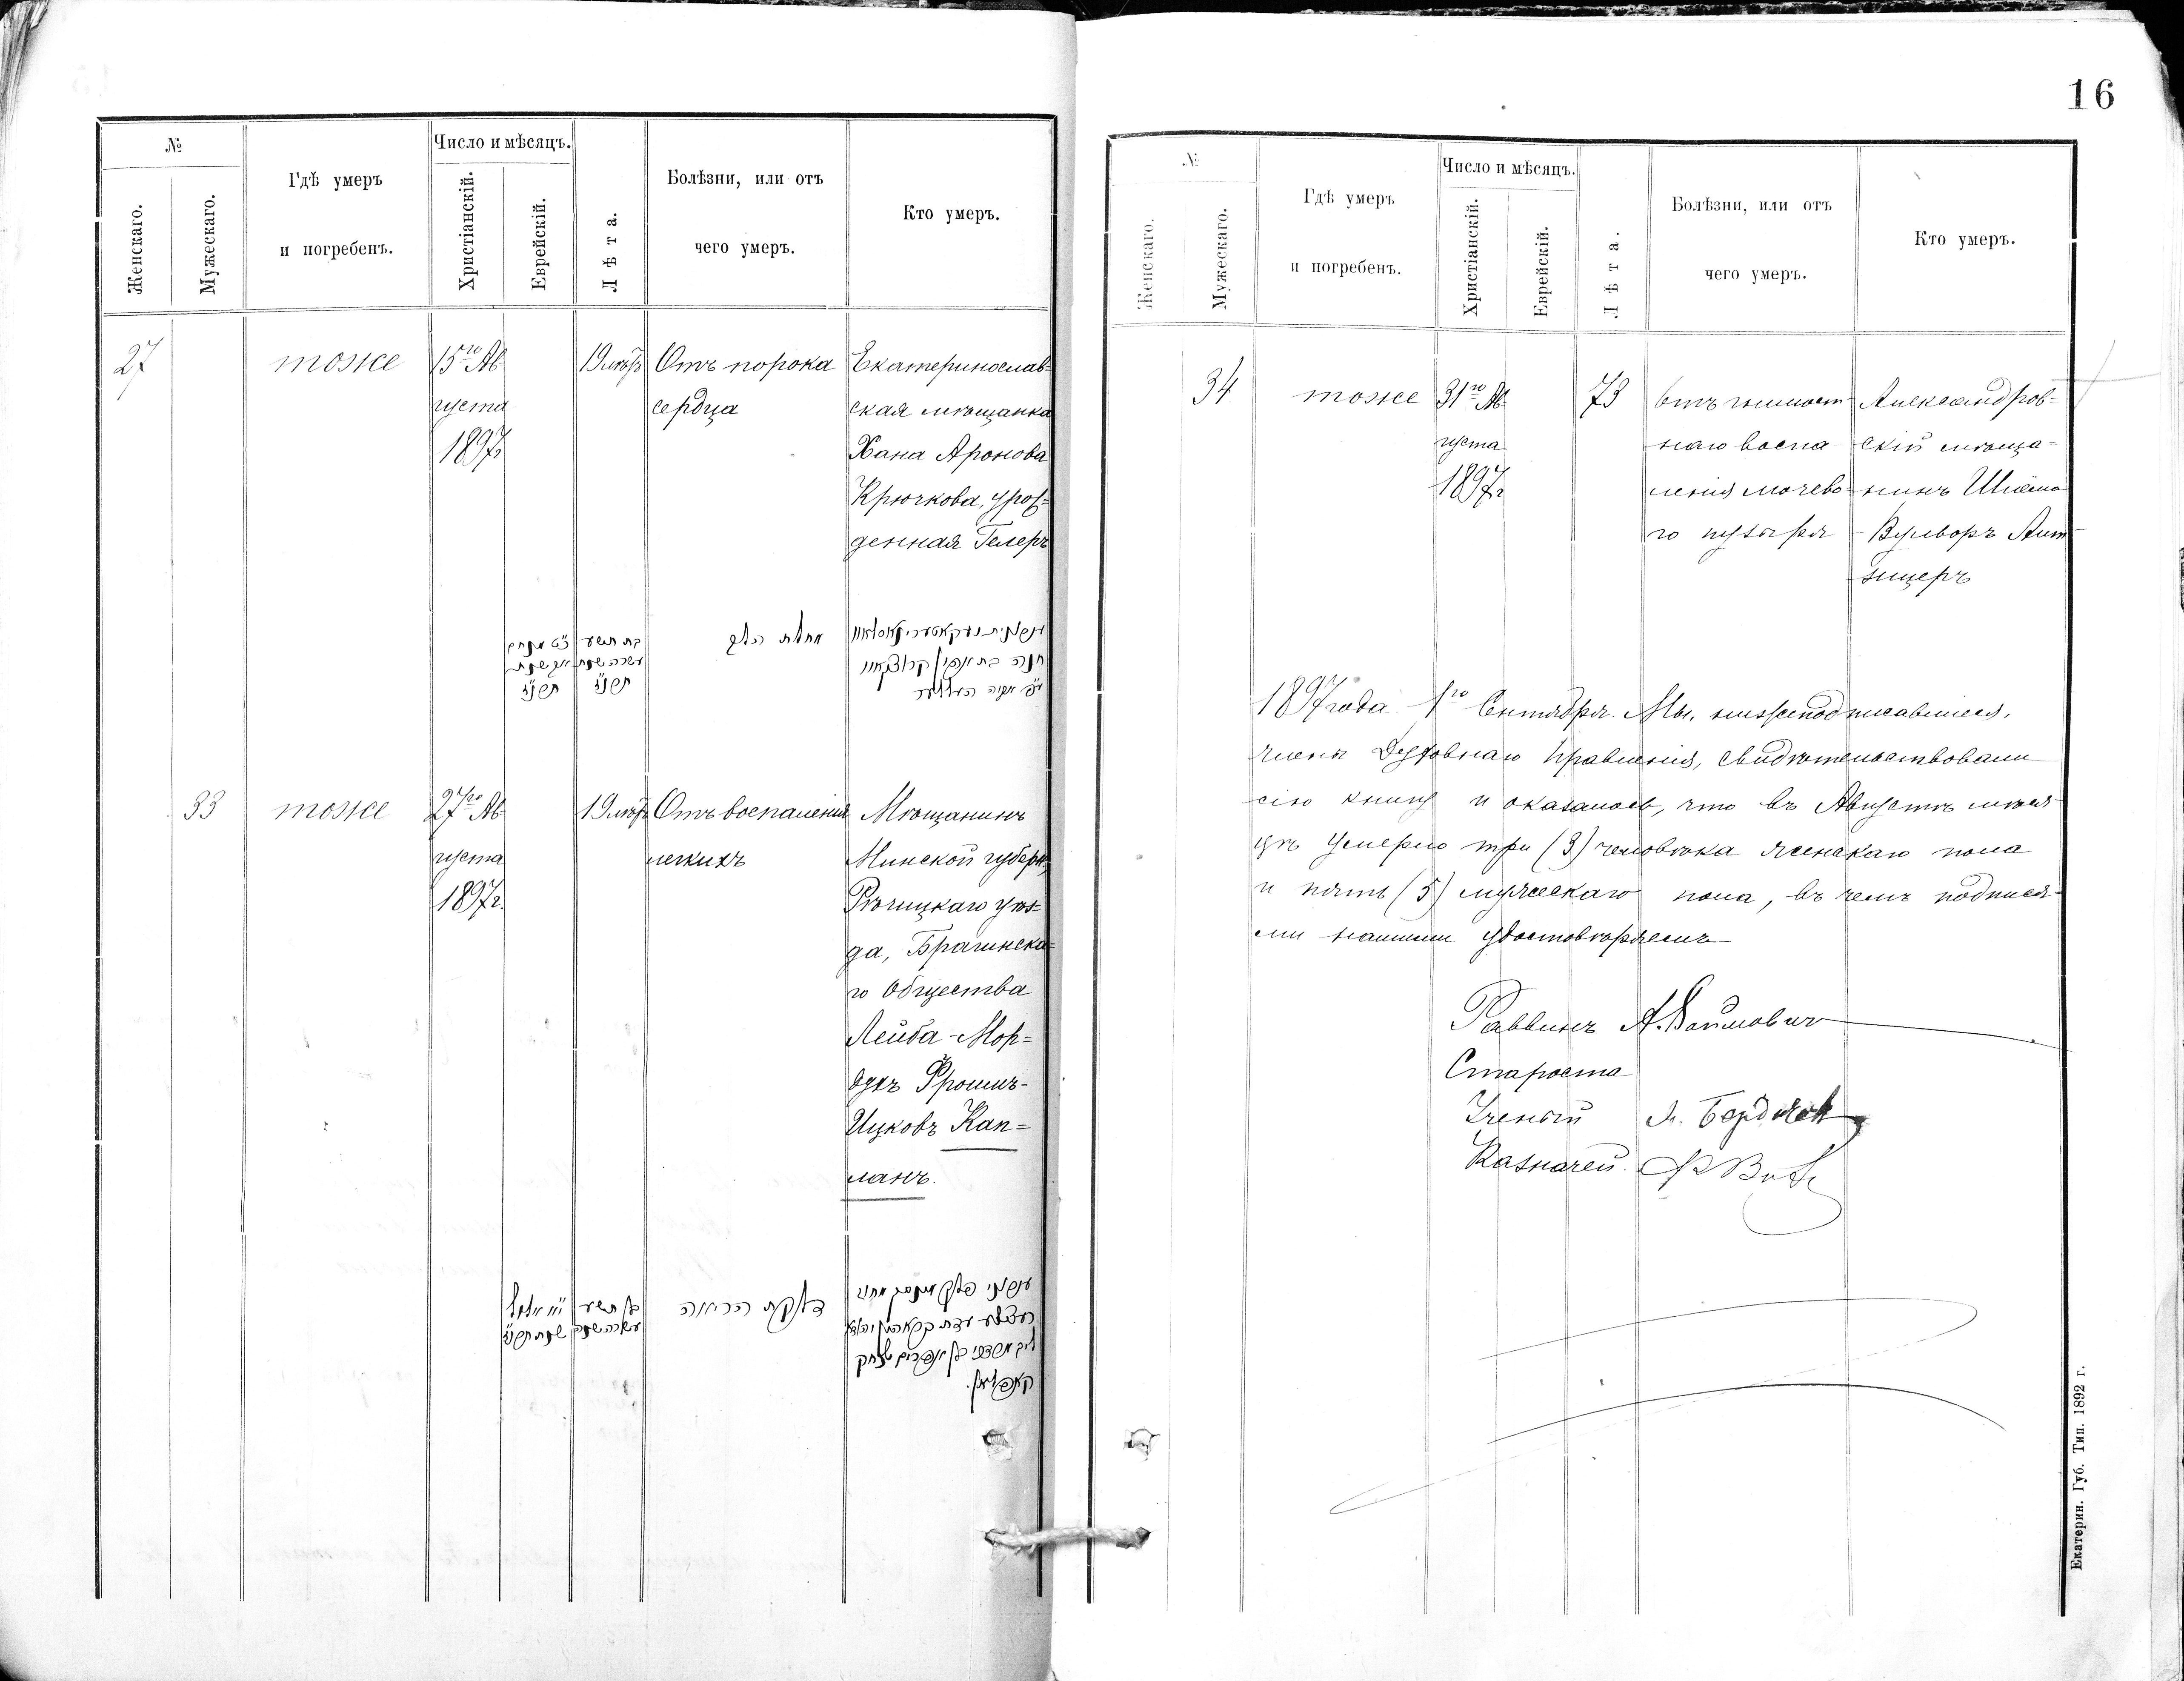 №
Женскаго.
Мужескаго.
Гдѣ умеръ
и погребенъ.
Число и мѣсяцъ.
Христіанскій.
Еврейскій.
Лѣта.
Болѣзни, или отъ
чего умеръ.
Кто умеръ.
27
тоже
15го Ав
густа
1897
19 лѣтъ
Отъ порока
сердца
Екатеринослав=
ская мѣщанка
Хана Аронова
Крючкова, урож=
денная Гелеръ
מחלת הלב
בת תשע
עשרה שנה
33
тоже
27го Ав
густа
1897г.
19 лѣтъ
Отъ воспаленія
легкихъ
Мѣщанинъ
Минской губерн.
Рѣчицкаго уѣз=
да, Брагинска=
го Общества
Лейба-Мор=
духъ Фроимъ-
Ицковъ Кап=
ланъ.
דלקת הריאה
בן תשע
עשרה שנה
16
№
Женскаго.
Мужескаго.
Гдѣ умеръ
и погребенъ.
Число и мѣсяцъ.
Христіанскій.
Еврейскій.
Лѣта.
Болѣзни, или отъ
чего умеръ.
Кто умеръ.
34
тоже
31го Ав
густа
1897г
73
наго воспа-
ленія мочево-
го пузыря
Александров=
скій мѣща=
нинъ Шлёма
1897 года 1го Сентября. Мы, нижеподписавшіеся,
члены Духовнаго Правленія, свидѣтельствовали
сію книгу и оказалось, что въ Августѣ мѣся-
цѣ умерло три (3) человѣка женскаго пола
и пять (5) мужескаго пола, въ чемъ подпися-
ми нашими удостовѣряемъ
Раввинъ
Староста
Ученый
Казначей
Екатерин. Губ. Тип. 1892 г.